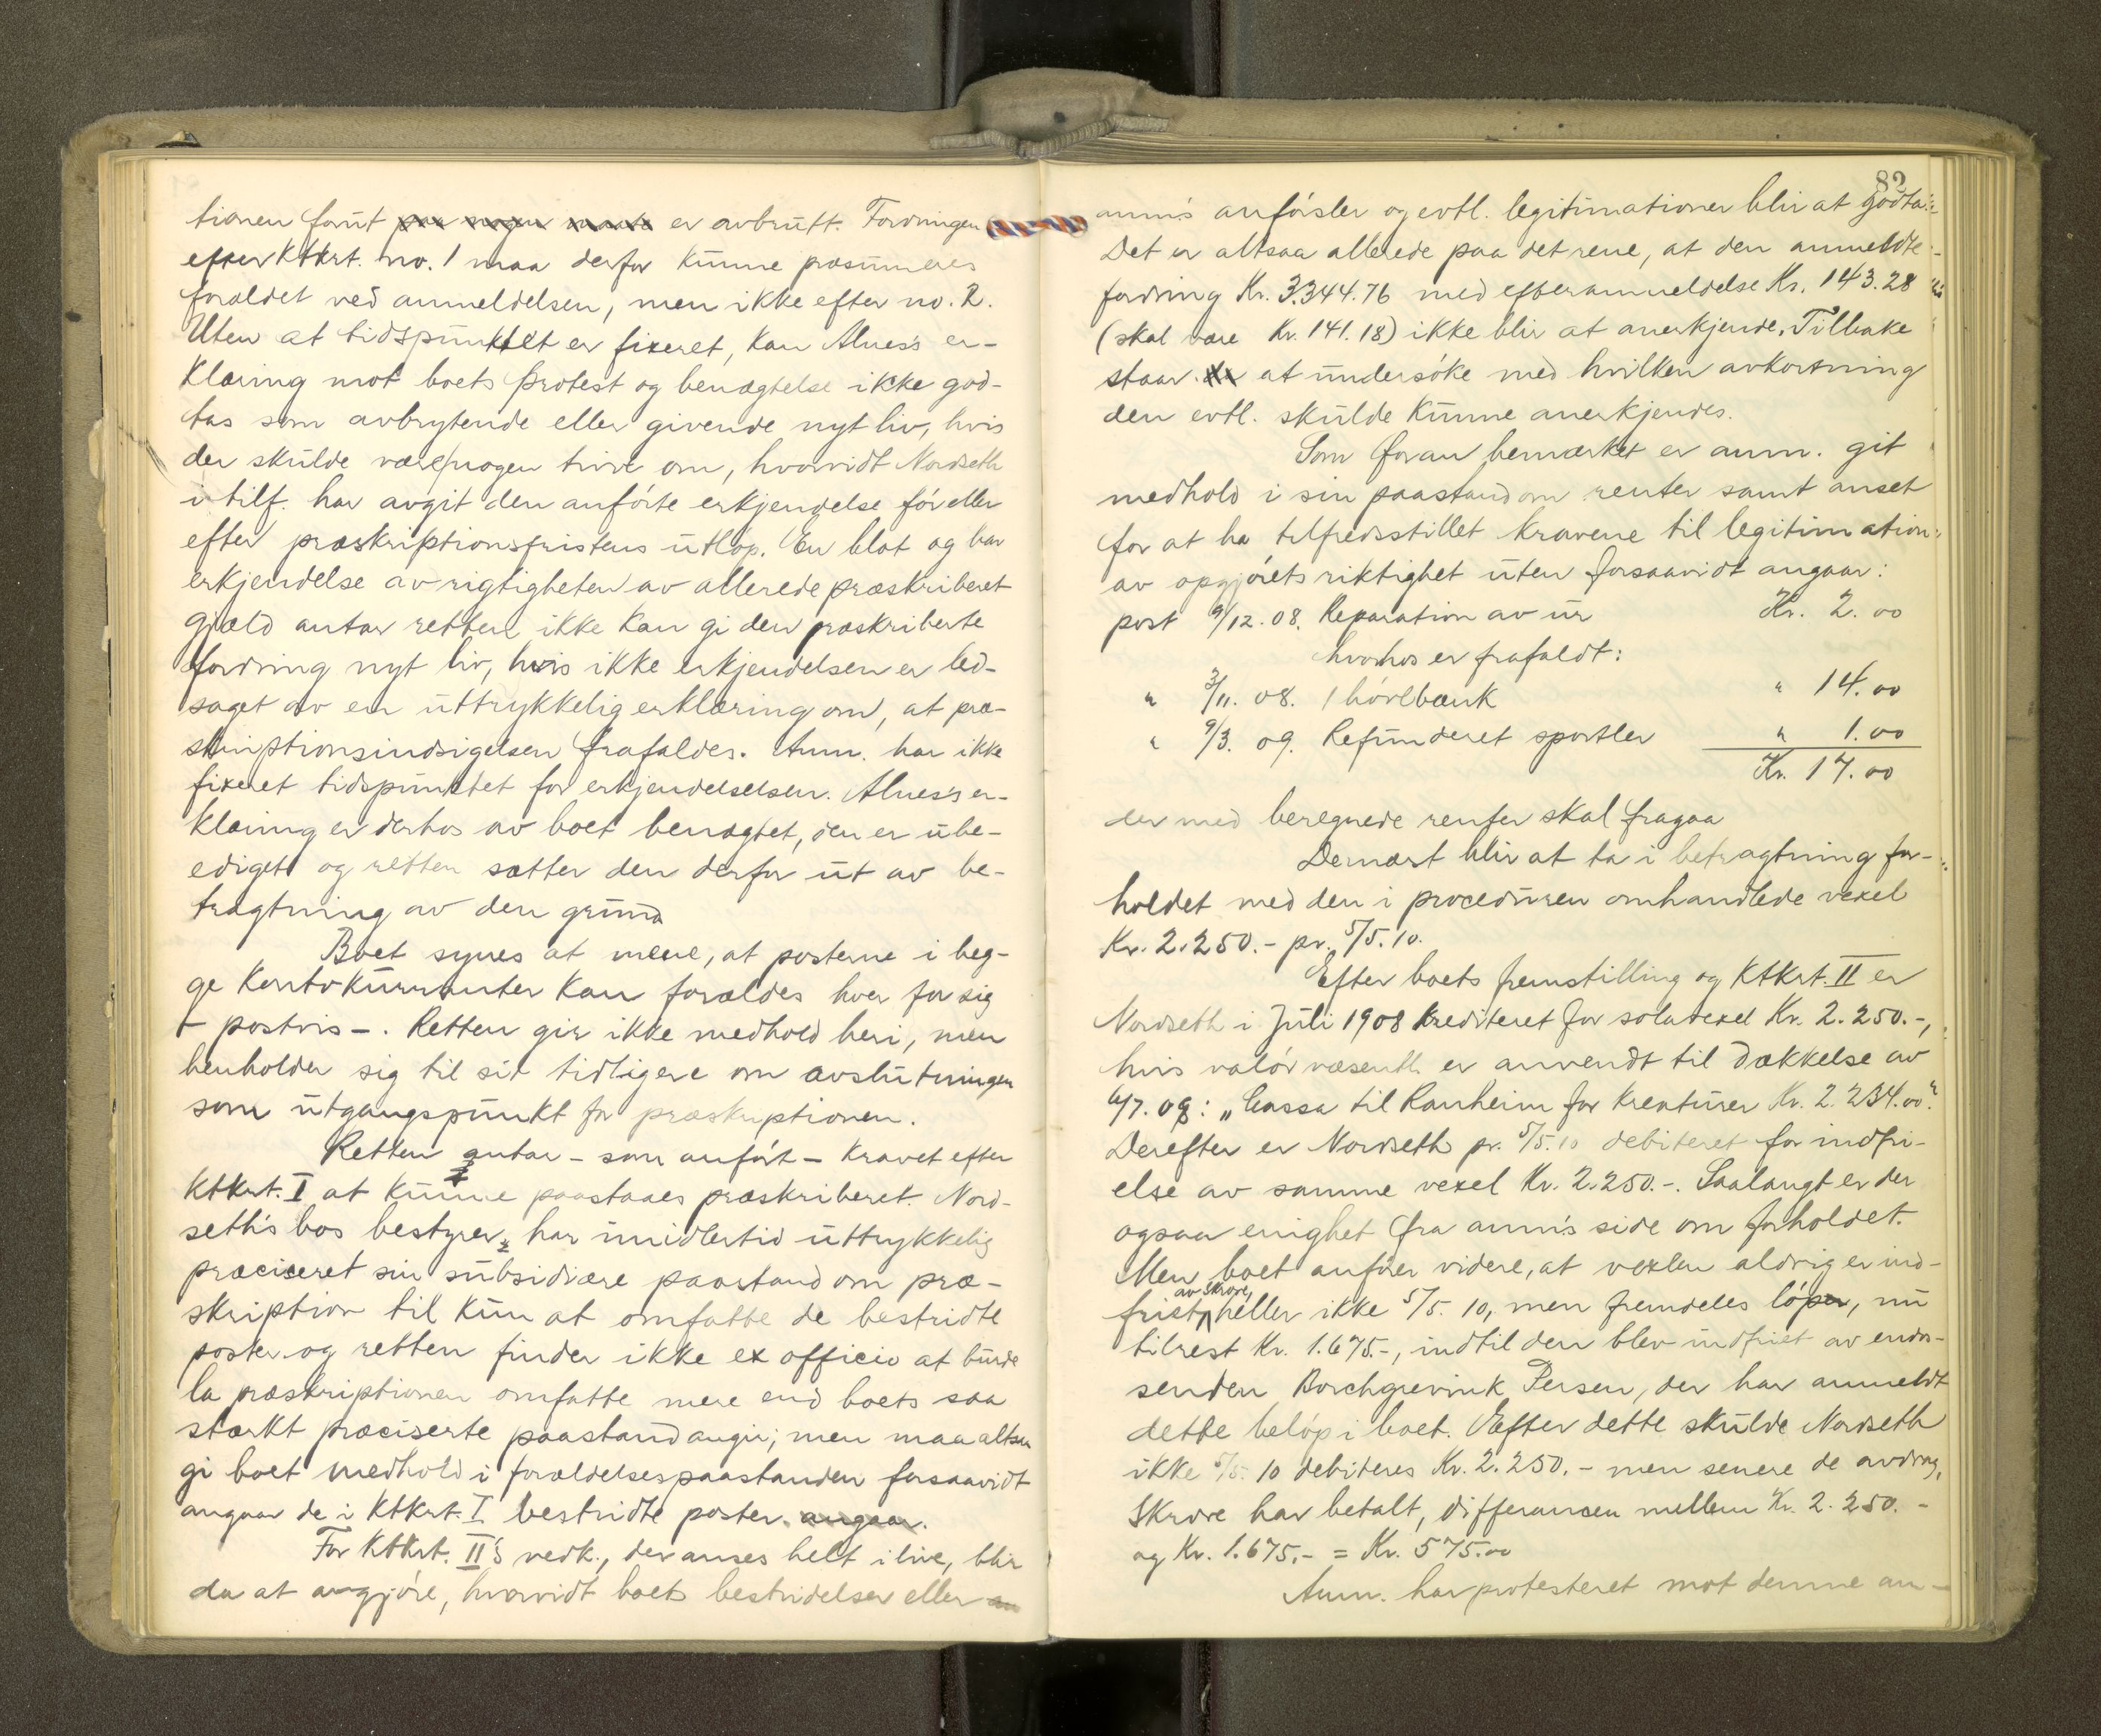 tionen forut paa nogen maate er avbrutt. Fordringen
efter Ktkrt. no. 1 maa derfor kunne præsumeres
forældet ved anmeldelsen, men ikke efter no. 2.
Uten at tidspunktet er fixeret, kan Alness er-
klæring mot boets protest og benægtelse ikke god-
tas som avbrytende eller givende nyt liv, hvis
der skulde være nogen tvivl om, hvorvidt Nordseth
i tilf. har avgit den anførte erkjendelse før eller
efter præskriptionsfristens utløp. En blot og bar
erkjendelse av rigtigheten av allerede præskriberet
gjæld antar retten ikke kan gi den præskriberte
fordring nyt liv, hvis ikke erkjendelsen er led-
saget av en uttrykkelig erklæring om, at præ-
skriptionsindsigelsen frafaldes. Anm. har ikke
fixeret tidspunktet for erkjendelselsen. Alness er-
klæring er derhos av boet benægtet, den er ube-
ediget og retten sætter den derfor ut av be-
tragtning av den grund
Boet synes at mene, at posterne i beg-
ge Kontokurranter kan forældes hver for sig
- postvis -. Retten gir ikke medhold heri, men
henholder sig til sit tidligere om avslutningen
som utgangspunkt for præskriptionen.
Retten antar - som anført - kravet efter
Ktkrt. I at kunne paastaaes præskriberet. Nord-
seth's bos bestyrer har imidlertid uttrykkelig
præciseret sin subsidiære paastand om præ-
skription til kun at omfatte de bestridte
poster og retten finder ikke ex officio at burde
la præskriptionen omfatte mere end boets saa
stærkt præciserte paastand angir; men maa altsaa
gi boet medhold i forældelsespaastanden forsaavidt
angaar de i Ktkrt. I bestridte poster. angaar.
For Ktkrt. II's vedk., der anses helt i live, blir
da at avgjøre, hvorvidt boets bestridelser eller an
82
anm's anførsler og evtl. legitimationer blir at godta
Det er altsaa allerede paa det rene, at den anmeldte
fordring Kr. 3.344.76 med efteranmeldelse Kr. 143.28
(skal være Kr. 141.18) ikke blir at anerkjende. Tilbake
staar at undersøke med hvilken avkortning
den evtl. skulde kunne anerkjendes.
Som foran bemærket er anm. git
medhold i sin paastand om renter samt anset
for at ha tilfredsstillet kravene til legitimation
av opgjørets riktighet uten forsaavidt angaar:
post 9/12. 08. Reparation av ur Kr. 2.00
hvorhos er frafaldt:
" 3/11. 08. 1 høvlbænk " 14.00
" 9/3. 09. Refunderet sportler " 1.00
Kr. 17.00
der med beregnede renter skal fragaa
Dernæst blir at ta i betragtning for-
holdet med den i proceduren omhandlede vexel
Kr. 2.250.- pr. 5/5. 10.
Efter boets fremstilling og Ktkrt. II er
Nordseth i Juli 1908 krediteret for solavexel Kr. 2.250.-,
hvis valør væsentl. er anvendt til dækkelse av
6/7. 08: "Cassa til Ranheim for kreaturer Kr. 2.234.00"
Derefter er Nordseth pr. 5/5. 10 debiteret for indfri-
else av samme vexel Kr. 2.250.-. Saalangt er der
ogsaa enighet fra anm's side om forholdet.
Men boet anfører videre, at vexlen aldrig er ind-
av Skrove,
friet, heller ikke 5/5. 10, men fremdeles løper, nu
tilrest Kr. 1.675.-, indtil den blev indfriet av endos-
senten Borchgrevink Persen, der har anmeldt
dette beløp i boet. Efter dette skulde Nordseth
ikke 5/5. 10 debiteres Kr. 2.250.- men senere de avdrag,
Skrove har betalt, differancen mellem Kr. 2.250.-
og Kr. 1.675.- = Kr. 575.00
Anm. har protesteret mot denne an-